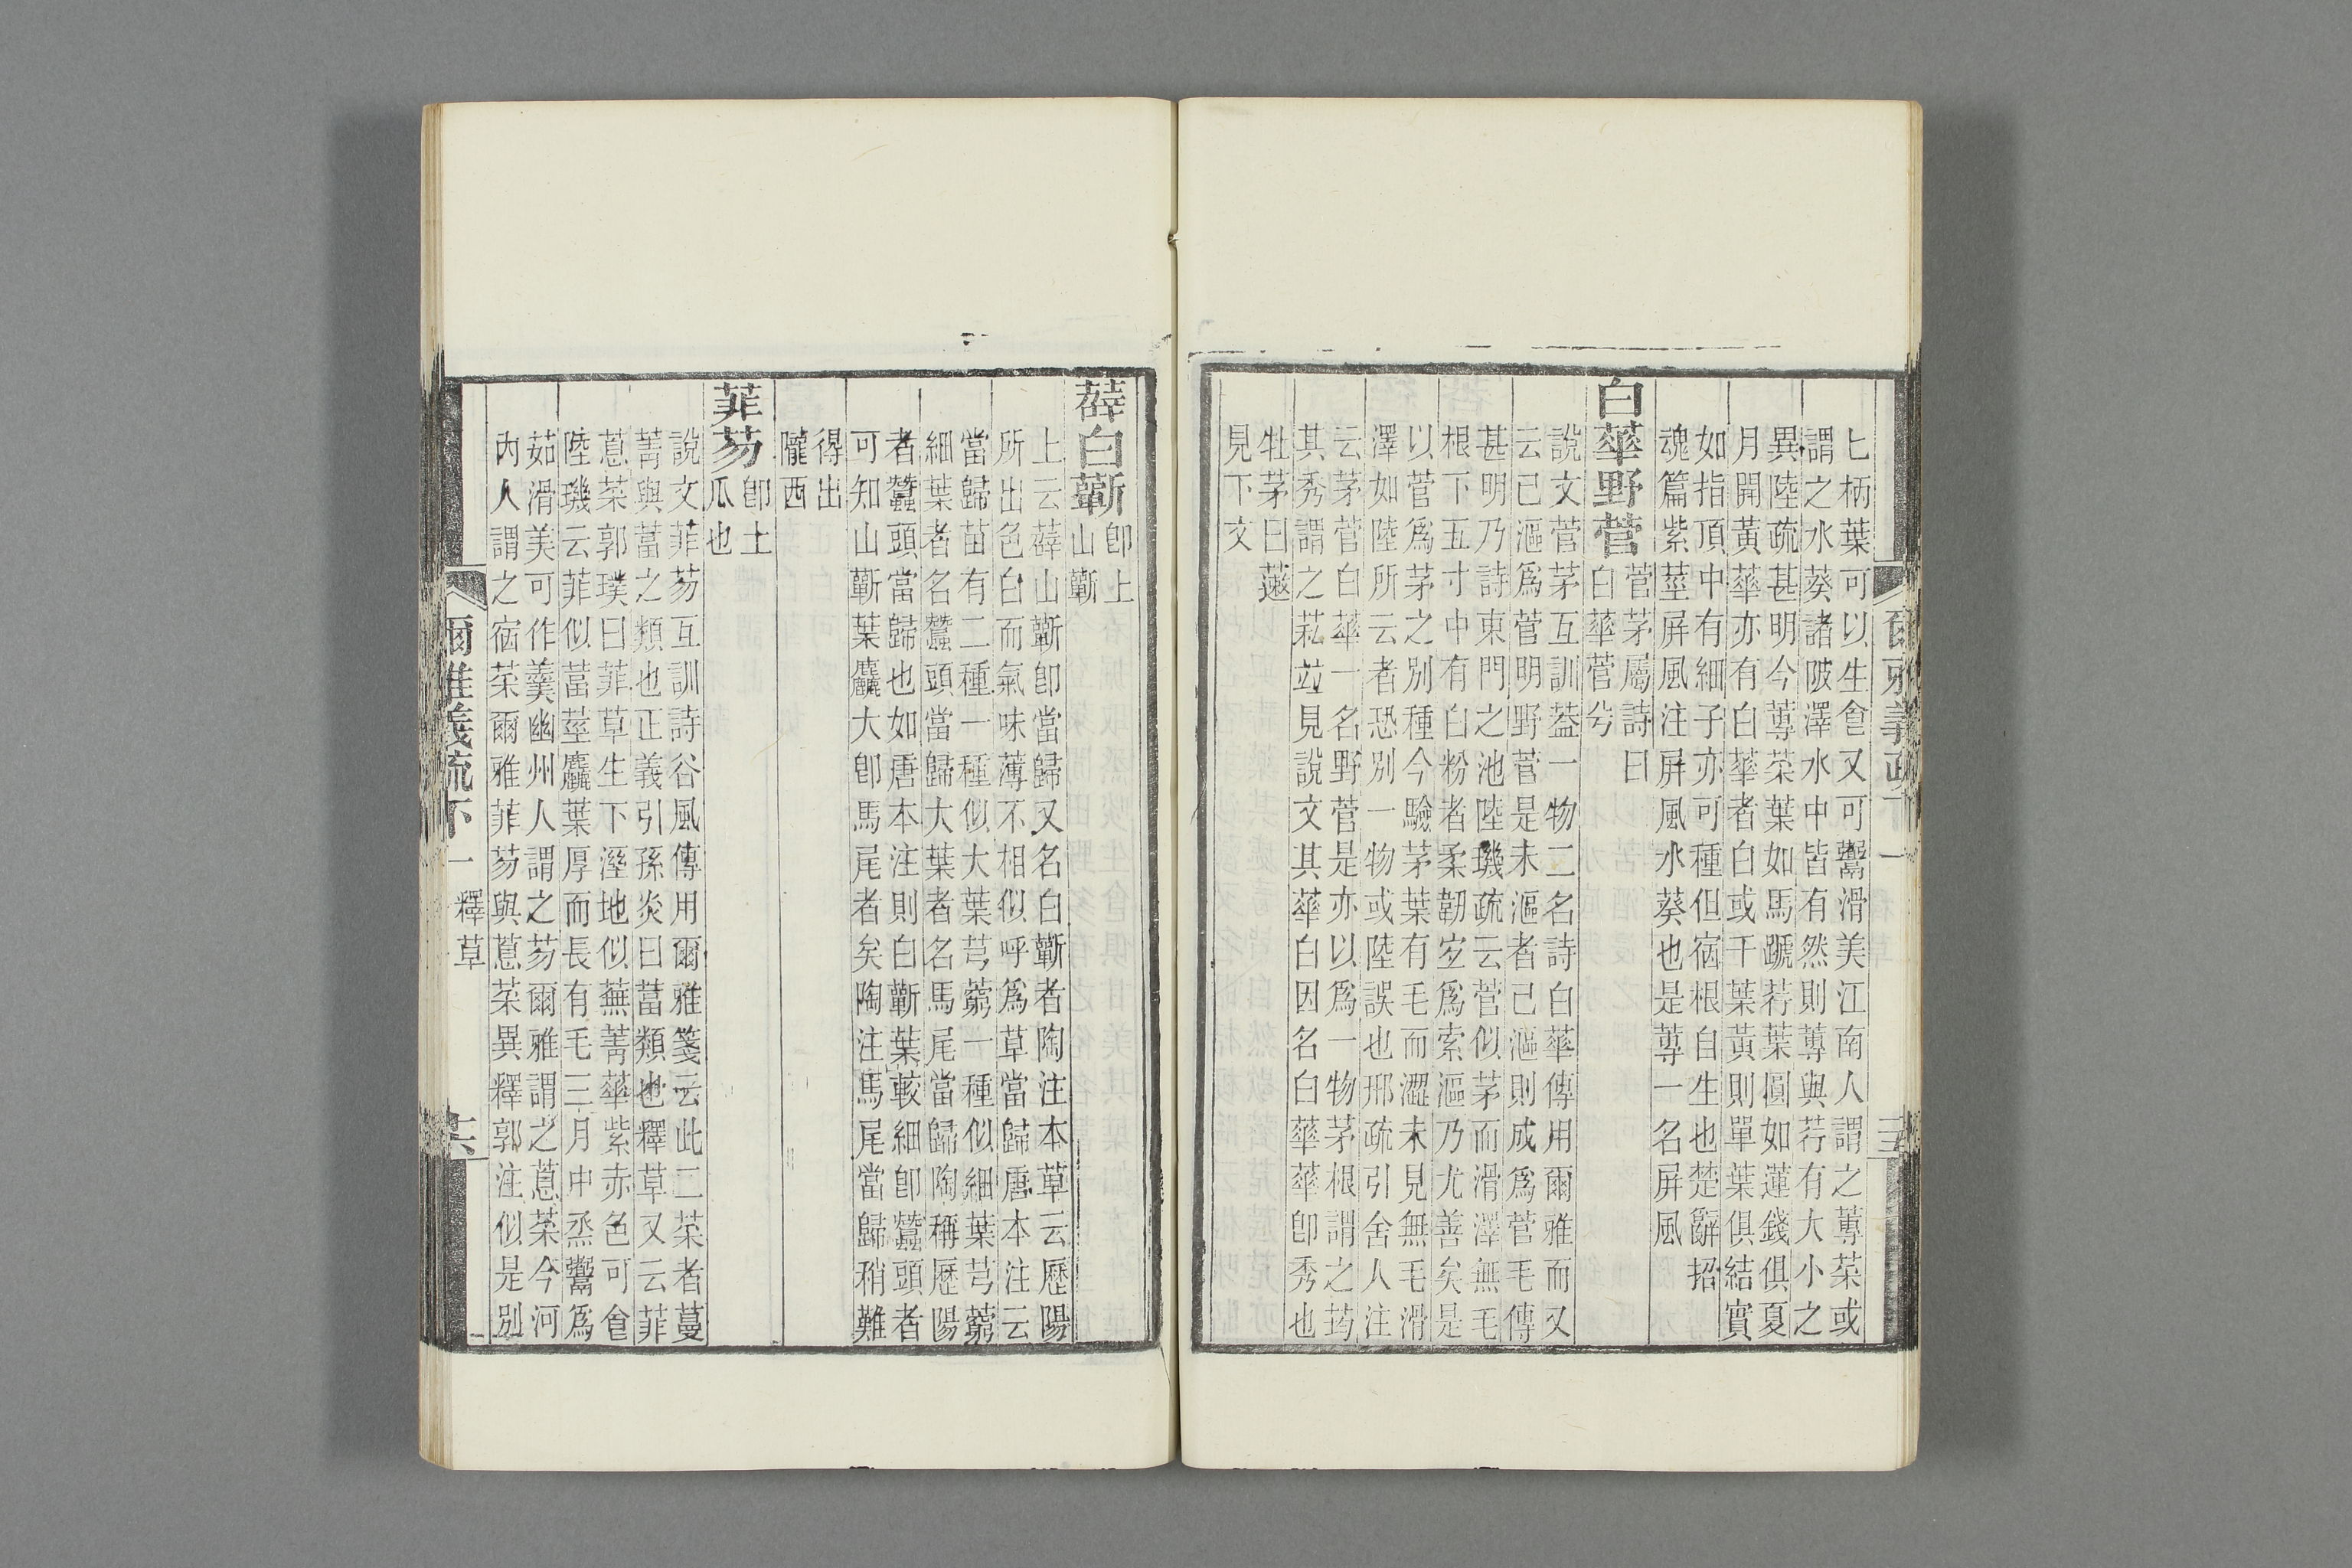 爾雅義疏下一
匕柄葉可以生㑹又可鬻滑美江南人謂之蓴菜或
謂之水葵諸陂澤水中皆有然則蓴與荇有大小之
異陸疏甚明今蓴菜葉如馬蹏荇葉圓如蓮錢俱夏
月開黃華亦有白華者白或千葉黃則單葉俱結實
如指頂中有細子亦可種但宿根自生也楚辭招
魂篇紫莖屏風注屏風水葵也是蓴一名屏風
白華野菅
菅茅屬詩曰
白華菅兮
說文菅茅互訓葢一物二名詩白華傳用爾雅而又
云已漚爲菅明野菅是未漚者已漚則成爲菅毛傳
甚明乃詩東門之池陸璣疏云菅似茅而滑澤無毛
根下五寸中有白粉者柔韌宜爲索漚乃尤善矣是
以菅爲茅之別種今驗茅葉有毛而澀未見無毛滑
澤如陸所云者恐別一物或陸誤也邢疏引舍人注
云茅菅白華一名野菅是亦以爲一物茅根謂之荺
其秀謂之䒥竝見說文其華白因名白華華卽秀也
牡茅曰蔱
見下文
薜白蘄
卽上
山蘄
上云薜山蘄卽當歸又名白蘄者陶注本草云歷陽
所出色白而氣味薄不相似呼爲草當歸唐本注云
當歸苗有二種一種似大葉芎藭一種似細葉芎藭
細葉者名蠶頭當歸大葉者名馬尾當歸陶稱歷陽
者蠶頭當歸也如唐本注則白蘄葉較細卽蠶頭者
可知山蘄葉麤大卽馬尾者矣陶注馬尾當歸稍難
得出
隴西
菲芴
卽土
瓜也
說文菲芴互訓詩谷風傳用爾雅箋云此二菜者蔓
菁與葍之類也正義引孫炎曰葍類也釋草又云菲
蒠菜郭璞曰菲草生下溼地似蕪菁華紫赤色可㑹
陸璣云菲似葍莖麤葉厚而長有毛三月中烝鬻爲
茹滑美可作羹幽州人謂之芴爾雅謂之蒠菜今河
內人謂之宿菜爾雅菲芴與蒠菜異釋郭注似是別
爾雅義疏下一 釋草